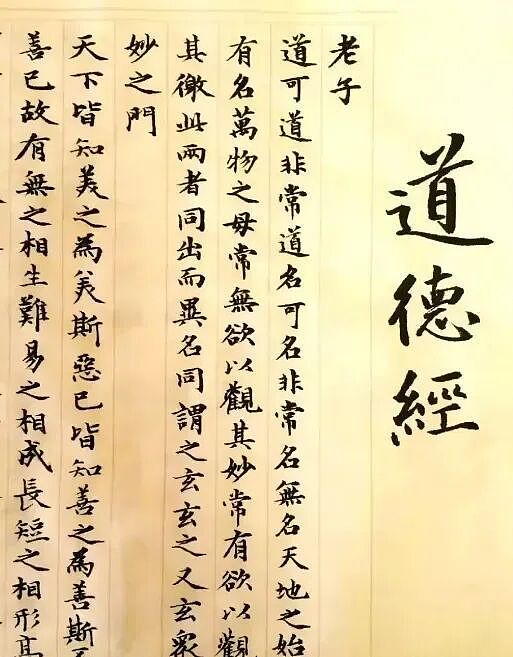 道德經
老子
道可道非常道名可名非常名無名天地之始
有名萬物之母常無欲以觀其妙常有欲以觀
其徼此兩者同出而異名同謂之玄玄之又玄眾
妙之門
天下皆知美之為美斯惡已皆知善之為善斯
善已故有無之相生難易之相成長短之相形高